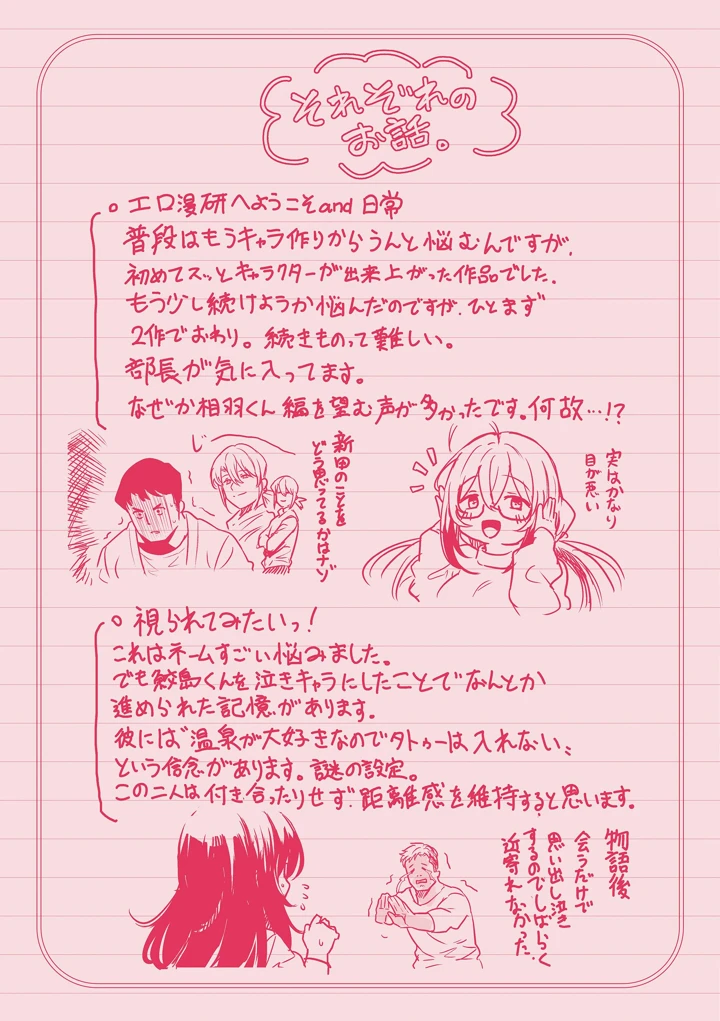 それぞれの
お話。
○ エロ漫研へようこそand 日常
普段はもうキャラ作りからうんと悩むんですが、
初めてスッとキャラクターが出来上がった作品でした。
もう少し続けようか悩んだのですが、ひとまず
2作でおわり。続きものって難しい。
部長が気に入ってます。
なぜか相羽くん編を望む声が多かったです。何故…!?
じ
新田のことを
どう思ってるかはナゾ
実はかなり
目が悪い
○ 視られてみたいっ!
これはネームすごい悩みました。
でも鮫島くんを泣きキャラにしたことでなんとか
進められた記憶があります。
彼には〝温泉が大好きなのでタトゥーは入れない〟
という信念があります。謎の設定。
この二人は付き合ったりせず、距離感を維持すると思います。
物語後
会うだけで
思い出し泣き
するのでしばらく
近寄れなかった。